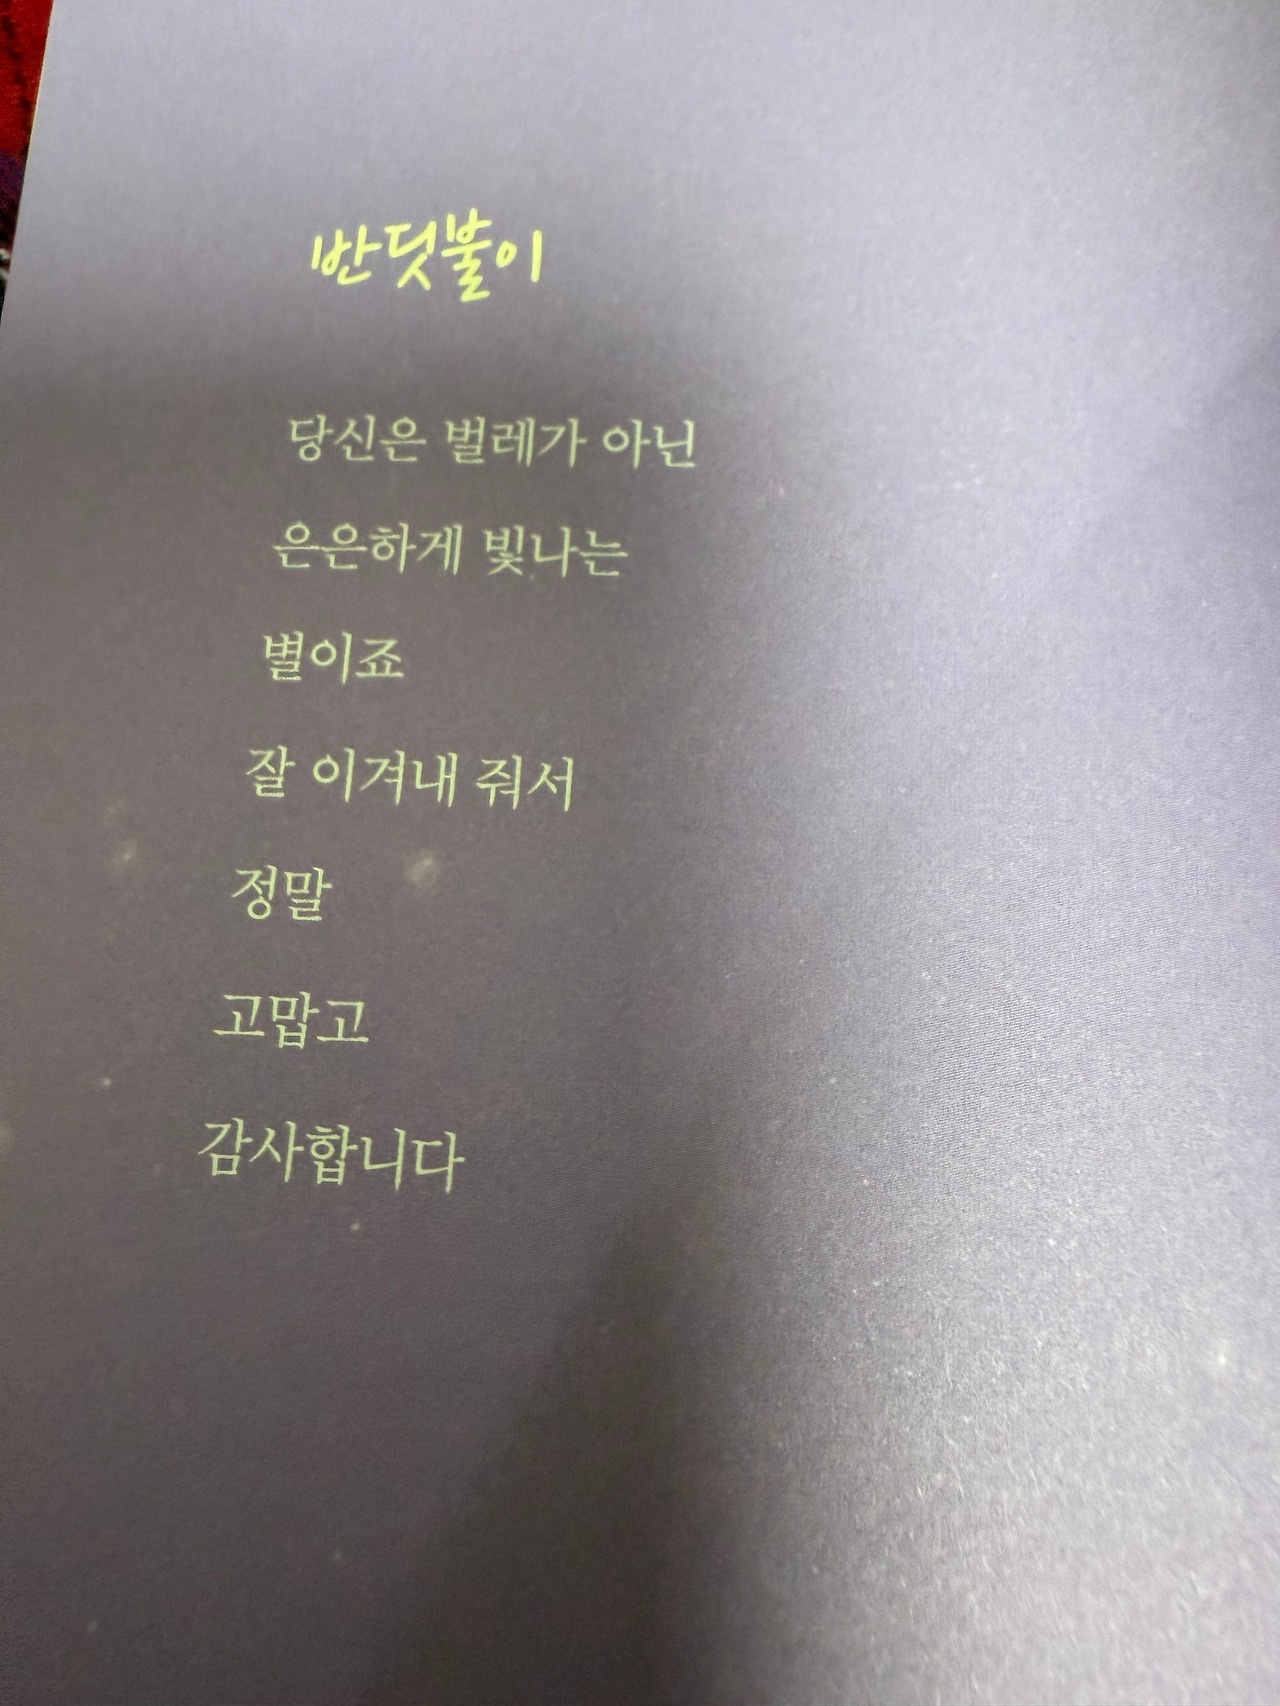 반딧불이
당신은 벌레가 아닌
은은하게 빛나는
별이죠
잘 이겨내 줘서
정말
고맙고
감사합니다